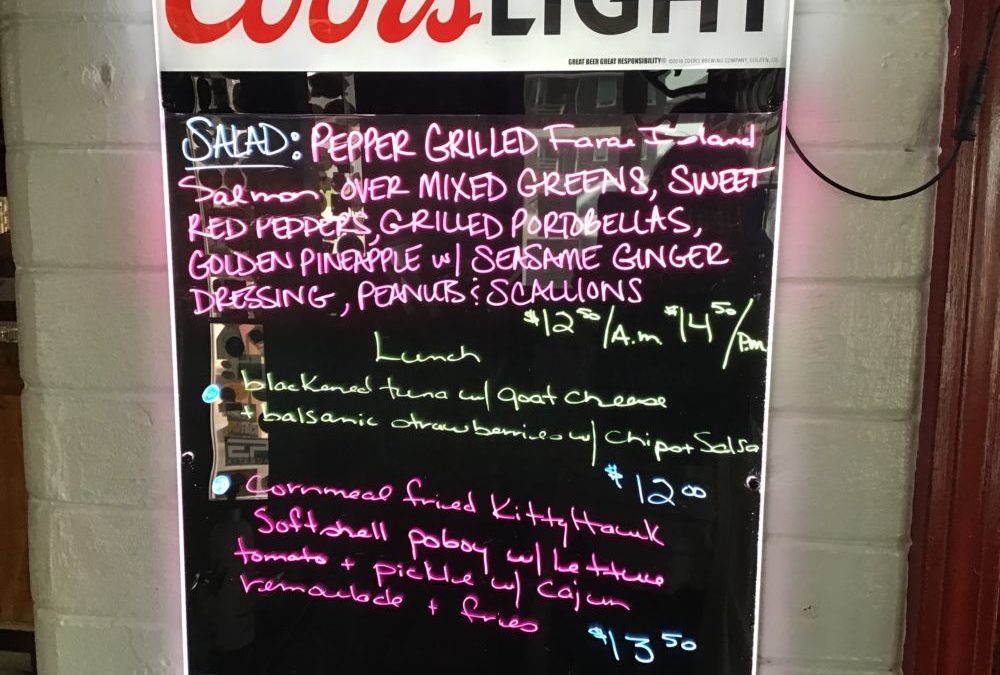 Coors LIGHT
GREAT BEER GREAT RESPONSIBILITY® ©2018 COORS BREWING COMPANY, GOLDEN, CO.
SALAD: PEPPER GRILLED Faroe Island
Salmon OVER MIXED GREENS, SWEET
RED PEPPERS, GRILLED PORTOBELLAS,
GOLDEN PINEAPPLE w/ SEASAME GINGER
DRESSING, PEANUTS & SCALLIONS
$12.50/A.m $14.50/P.m
Lunch
blackened tuna w/ goat cheese
+ balsamic strawberries w/ Chips + Salsa
$12.00
Cornmeal fried KittyHawk
Softshell poboy w/ Lettuce
tomato + pickle w/ Cajun
remoulade + fries
$13.50